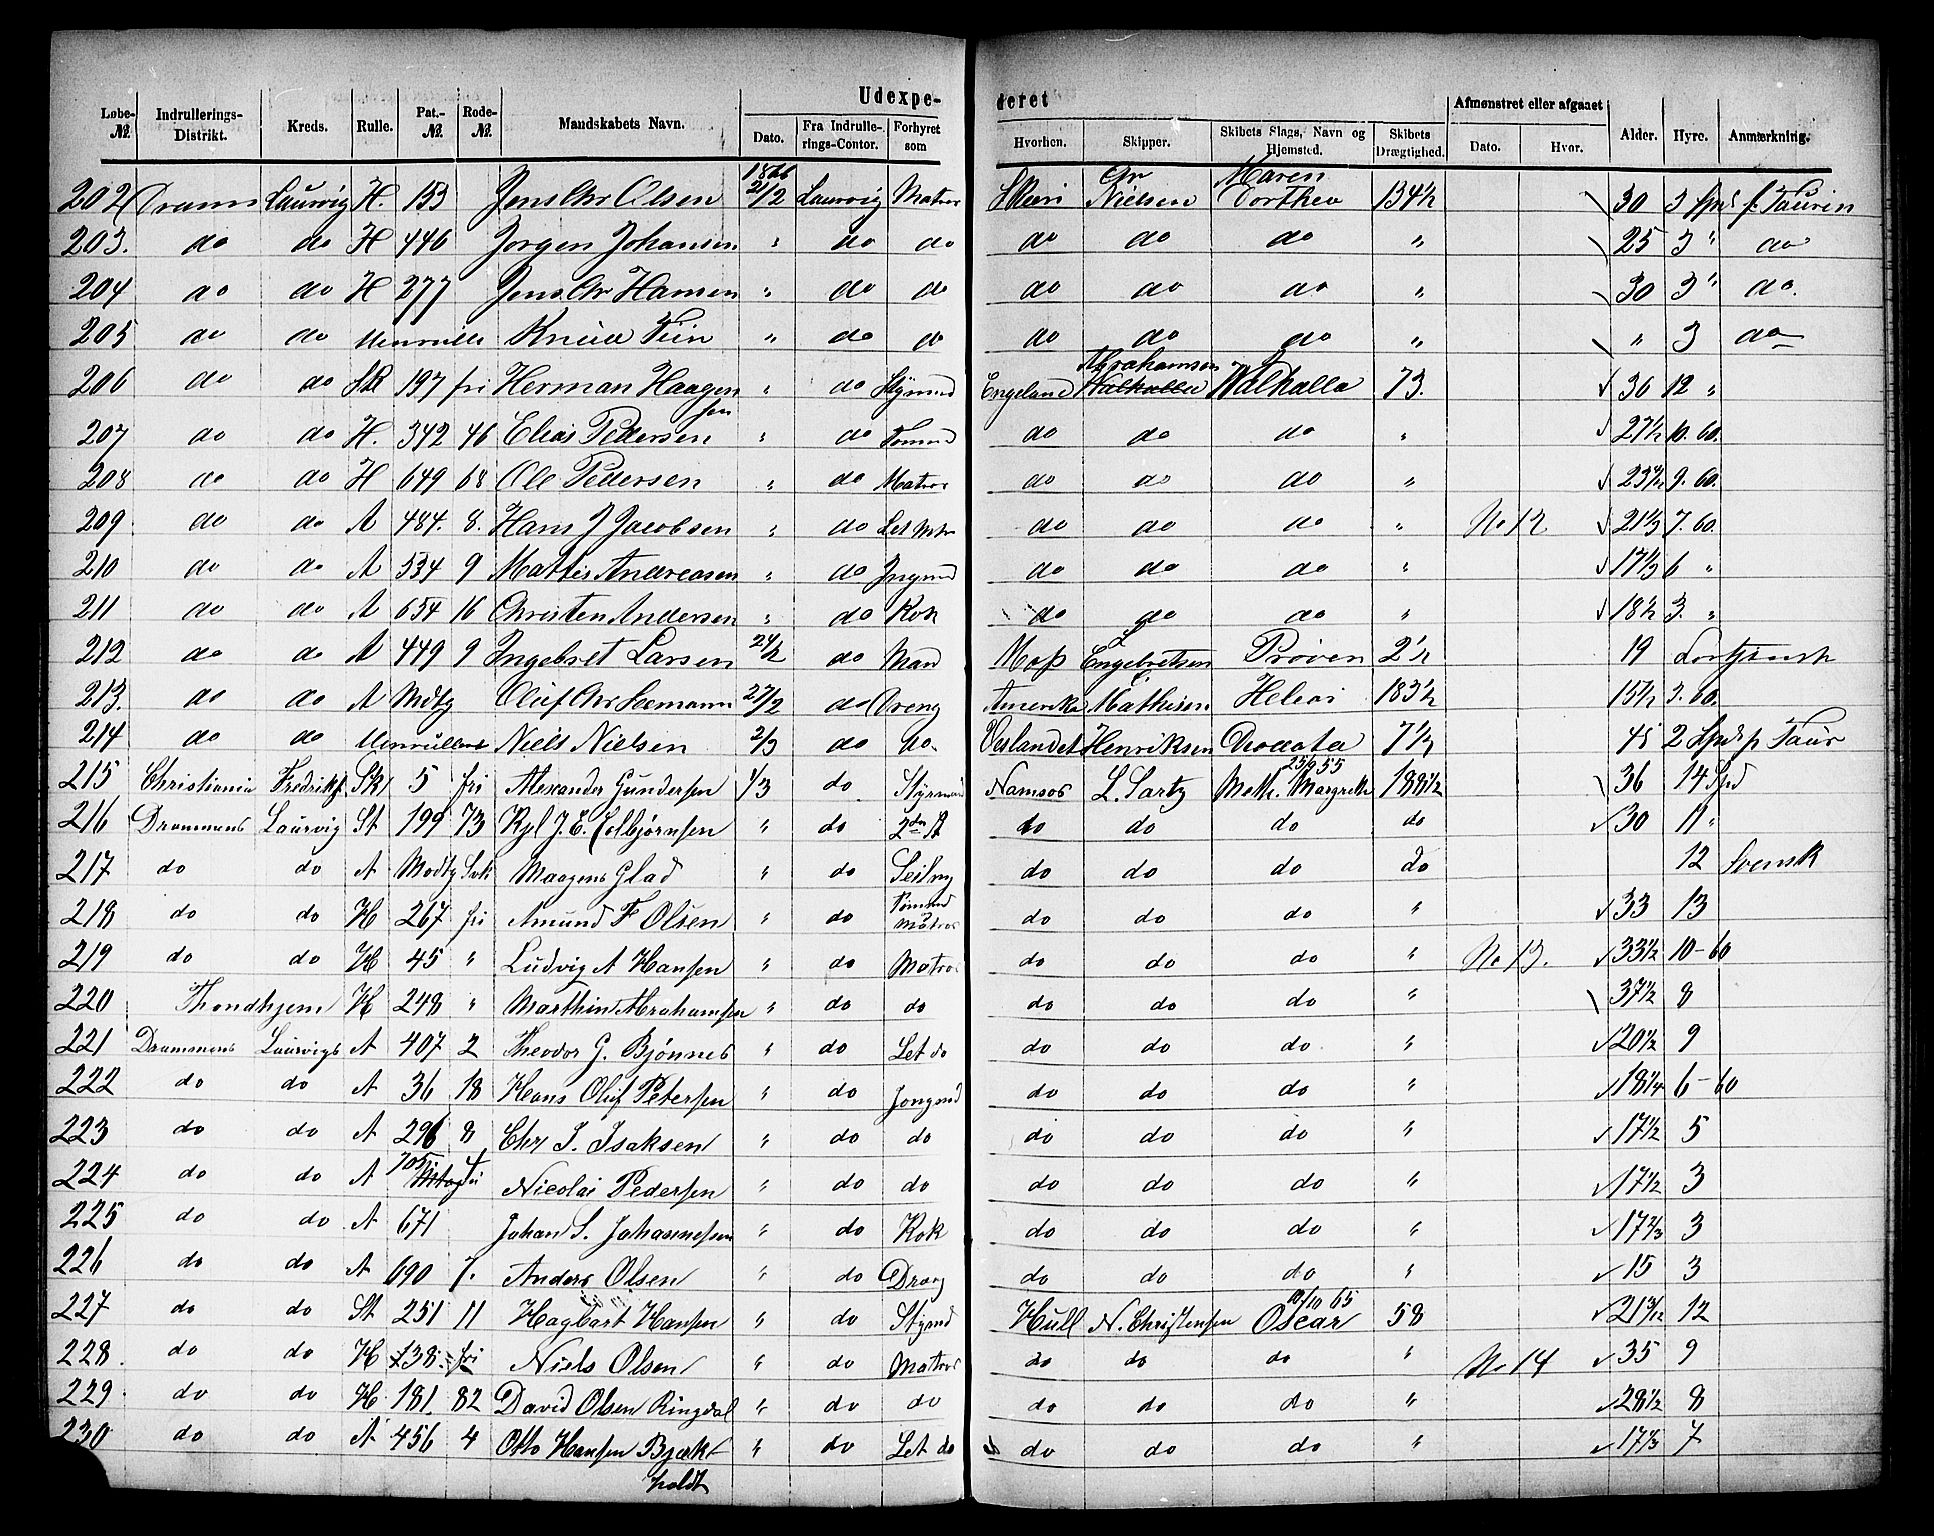 Udexpe- deret
Løbe-№. Indrullerings-Distrikt. Kreds. Rulle. Pat.-№. Rode-№. Mandskabets Navn. Dato. Fra Indrulle-rings-Contor. Forhyret som Hvorhen. Skipper. Skibets Slags, Navn og Hjemsted. Skibets Drægtighed. Afmønstret eller afgaaet Dato. Hvor. Alder. Hyre. Anmærkning.
202 Dramm Laurvig H. 153 Jens Chr Olsen 1866 21/2 Laurvig Matros Chr Nielsen Maren Dorthea 134½ 30 3
203. do do H 446 Jørgen Johansen " do do do do do " 25 3 " do
204 do do H 277 Jens Chr Hansen " do do do do do " 30 3 " do.
205 do do Knud " do do do do do " " 3 do
206 do do 197 fri Herman Haagensen " do Stymd Engeland Abrahamsen Walhalla 73. 36 12 "
207 do do H. 342 46 Elias Pedersen " do Tømmd do do do " 27½ 10. 60.
208 do do H 649 68 Ole Pedersen " do Matros do do do " 23 9. 60.
209. do do A 484. 8. Hans J Jacobsen " do Let Mtr do do do " No 12 21⅓ 7. 60.
210 do do A 534 9 Mattis Andreasen " do Jngmd do do do " 17⅓ 6 "
211 do do A 654 16 Christen Andersen " do Kok do do do " 18½ 3. "
212 do do A 449 9 Ingebret Larsen 24/2 do Man Moss L Engebretsen Prøven 2½ 19
213. do do A Mdtg Oluf Chr Seemann 27/2 do Dreng Amerika Mathisen Helios 183½ 15½ 3. 60.
214 do do Niels Nielsen 2/3 do do. Veslandet Henriksen 7½ 45 2
215 Christiania Fredriks. Sk 5 fri Alexander Gundersen 1/3 do Styrmand Namsos L. Sartz Meth. Margrethe 25/9 55 188½ 36 14 Spd
216 Drammens Laurvig St 199 73 Kyl J. E. Colbjørnsen " do 2den St do do do do 30 11 "
217 do do A Modtg Maagens Glad " do do do do do 12 Svensk
218 do do H 267 fri Amund F Olsen " do Tømmd Matros do do do " 33 13
219 do do H 45 " Ludvig A Hansen " do Matros do do do " No 13. 33½ 10-60
220 Throndhjem H 248 " Marthin Abrahamsen " do do do do do " 37½ 8
221 Drammens Laurvigs A 407 2 Theodor G. Bjønnes " do Let do do do do " 20½ 9
222 do do A 36 18 Hans Oluf Petersen " do Jongmd do do do " 18¼ 6-60
223 do do A 296 8 Chr I. Isaksen " do do do do do " 17½ 5
224 do do A 705 Nicolai Pedersen " do do do do do " 17½ 3
225 do do A 671 Johan S. Johannesen " do Kok do do do " 17⅔ 3
226 do do A 690 7. Anders Olsen " do Dreng do do do " 15 3
227 do do St 251 11 Hagbart Hansen " do Stymd Hull N. Christensen Oscar 10/10 65 58 21 3/12 12
228. do do H 138. fri Niels Olsen " do Matros do do do " No 14 35 9
229 do do H 181 82 David Olsen Ringdal " do do do do do " 28½ 8
230 do do A 456 4 Otto Hansen Bjækholdt " do Let do do do do " 17⅓ 7